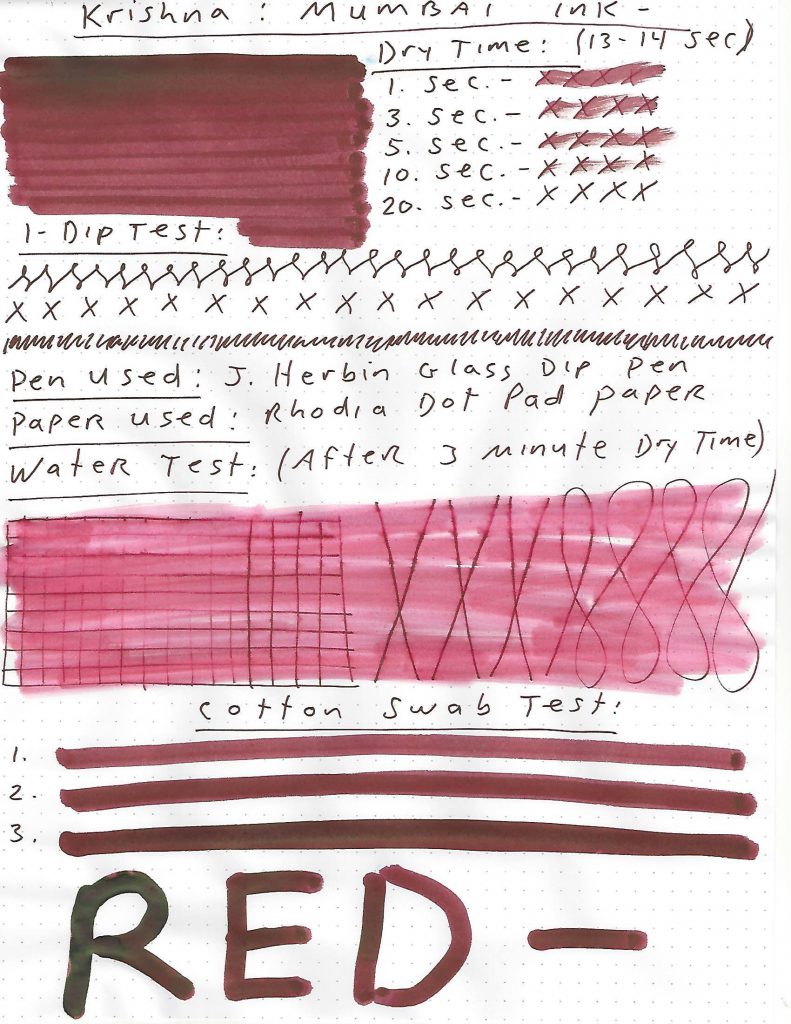 Krishna: Mumbai Ink -
Dry Time: (13-14 sec)
1. sec. - X X X X
3. sec. - X X X X
5. sec. - X X X X
10. sec. - X X X X
20. sec. - X X X X
1- Dip Test:
X X X X X X X X X X X X X X X X X
Pen Used: J. Herbin Glass Dip Pen
Paper Used: Rhodia Dot Pad paper
Water Test: (After 3 minute Dry Time)
Cotton Swab Test:
1.
2.
3.
RED -